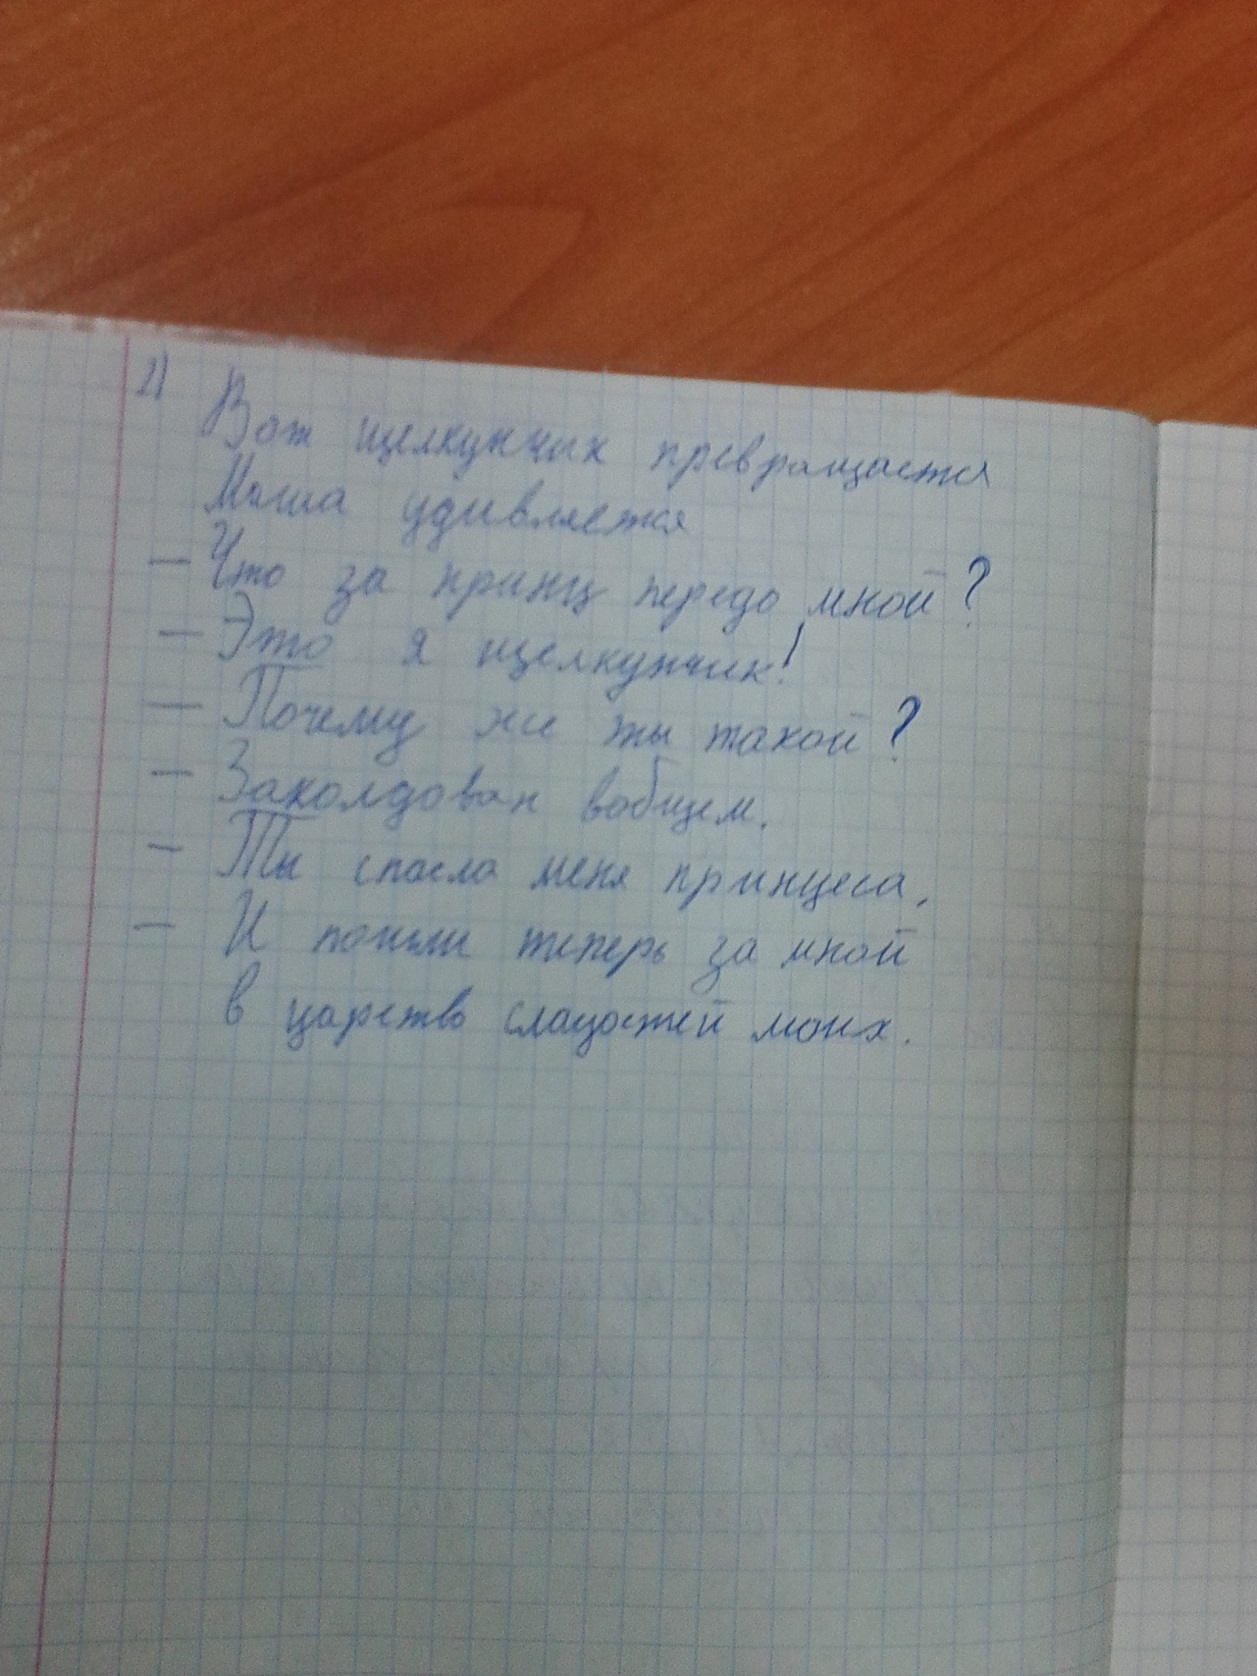 1) Вот щелкунчик превращается
Маша удивляется
— Что за принц передо мной?
— Это я щелкунчик!
— Почему же ты такой?
— Заколдован вобщем.
— Ты спасла меня принцеса,
— И пошли теперь за мной
в царство сладостей моих.